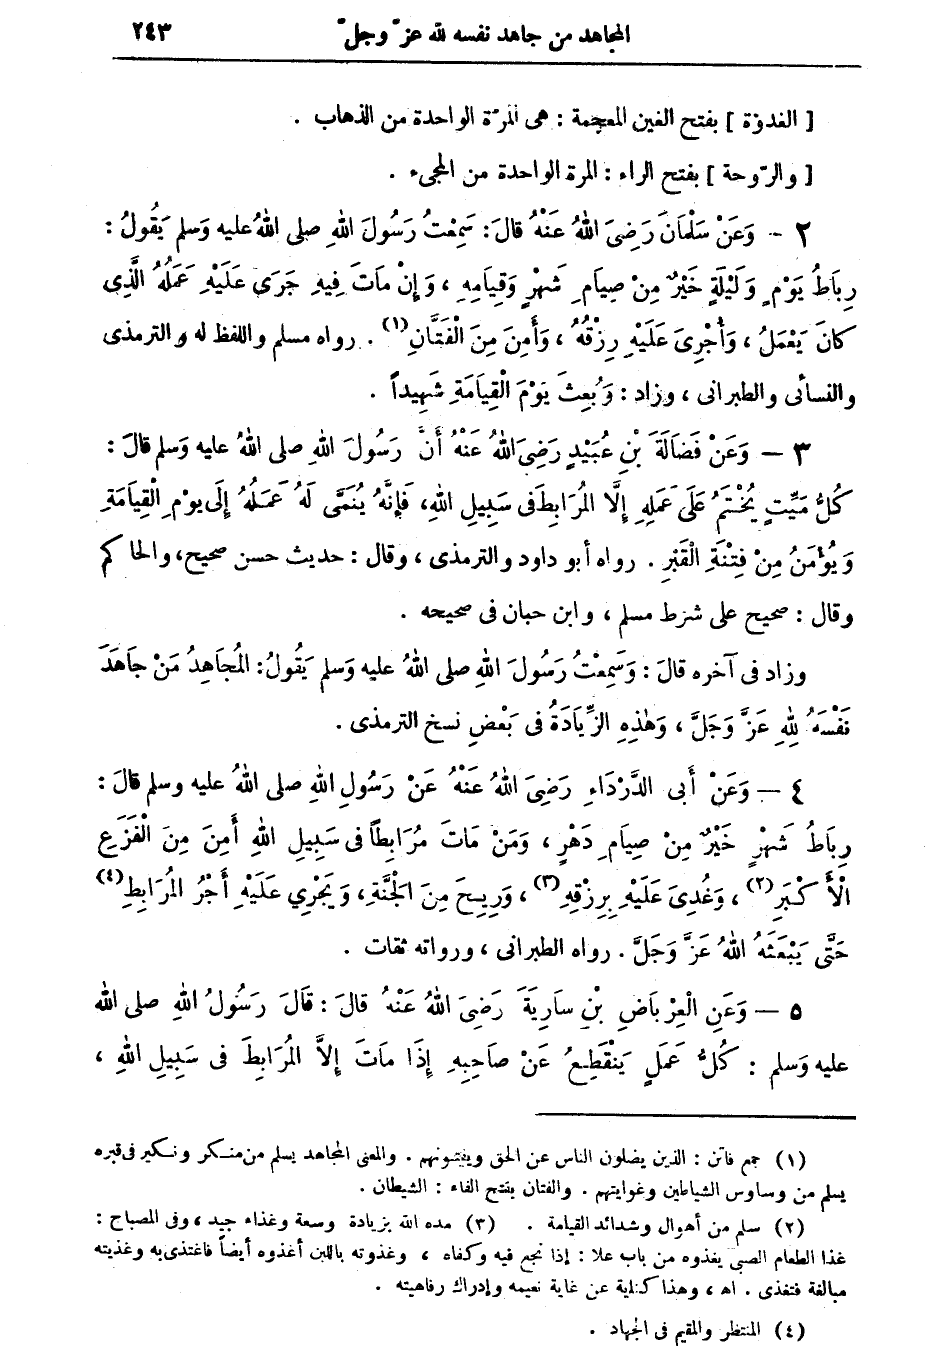 المجاهد من جاهد نفسه لله عزّ وجلّ ٢٤٣
[ الغدوة ] بفتح الغين المعجمة : هى المرّة الواحدة من الذهاب .
[ والرّوحة ] بفتح الراء : المرة الواحدة من المجىء .
٢ - وَعَنْ سَلْمَانَ رَضِىَ اللهُ عَنْهُ قَالَ : سَمِعْتُ رَسُولَ اللهِ صلى اللهُ عليه وَسلم يَقُولُ :
رِبَاطُ يَوْمٍ وَلَيْلَةٍ خَيْرٌ مِنْ صِيَامِ شَهْرٍ وَقِيَامِهِ ، وَإِنْ مَاتَ فِيهِ جَرَى عَلَيْهِ عَمَلُهُ الَّذِى
كَانَ يَعْمَلُ ، وَأُجْرِىَ عَلَيْهِ رِزْقُهُ ، وَأَمِنَ مِنَ الْفَتَّانِ (١) . رواه مسلم واللفظ له والترمذى
والنسائى والطبرانى ، وزاد : وَبُعِثَ يَوْمَ الْقِيَامَةِ شَهِيداً .
٣ — وَعَنْ فَضَالَةَ بْنِ عُبَيْدٍ رَضِىَ اللهُ عَنْهُ أَنَّ رَسُولَ اللهِ صلى اللهُ عليه وَسلم قالَ :
كُلُّ مَيِّتٍ يُخْتَمُ عَلَى عَمَلِهِ إِلَّا الْمُرَابِطَ فى سَبِيلِ اللهِ، فَإِنَّهُ يُنَمَّى لَهُ عَمَلُهُ إِلَى يَوْمِ الْقِيَامَةِ
وَيُؤْمَنُ مِنْ فِتْنَةِ الْقَبْرِ . رواه أبو داود والترمذى ، وقال : حديث حسن صحيح، والحاكم
وقال : صحيح على شرط مسلم ، وابن حبان فى صحيحه .
وزاد فى آخره قالَ : وَسَمِعْتُ رَسُولَ اللهِ صلى اللهُ عليه وَسلم يَقُولُ : الْمُجَاهِدُ مَنْ جَاهَدَ
نَفْسَهُ لِلهِ عَزَّ وَجَلَّ ، وَهٰذِهِ الزِّيَادَةُ فى بَعْضِ نسخ الترمذى .
٤ — وَعَنْ أَبى الدَّرْدَاءِ رَضِىَ اللهُ عَنْهُ عَنْ رَسُولِ اللهِ صلى اللهُ عليه وسلم قالَ :
رِبَاطُ شَهْرٍ خَيْرٌ مِنْ صِيَامِ دَهْرٍ ، وَمَنْ مَاتَ مُرَابِطًا فى سَبِيلِ اللهِ أَمِنَ مِنَ الْفَزَعِ
الْأَكْبَرِ (٢) ، وَغُدِىَ عَلَيْهِ بِرِزْقِهِ (٣) ، وَرِيحَ مِنَ الْجَنَّةِ ، وَيَجْرِي عَلَيْهِ أَجْرُ الْمُرَابِطِ (٤)
حَتَّى يَبْعَثَهُ اللهُ عَزَّ وَجَلَّ . رواه الطبرانى ، ورواته ثقات .
٥ — وَعَنِ الْعِرْبَاضِ بْنِ سَارِيَةَ رَضِىَ اللهُ عَنْهُ قالَ : قَالَ رَسُولُ اللهِ صلى الله
عليه وَسلم : كُلُّ عَمَلٍ يَنْقَطِعُ عَنْ صَاحِبِهِ إِذَا مَاتَ إِلاَّ الْمُرَابِطَ فى سَبِيلِ اللهِ ،
(١) جمع فاتن : الذين يضلون الناس عن الحق ويفتنونهم . والمعنى المجاهد يسلم من منكر ونكير فى قبره
يسلم من وساوس الشياطين وغوايتهم . والفتان بفتح الفاء : الشيطان .
(٢) سلم من أهوال وشدائد القيامة . (٣) مده الله بزيادة وسعة وغذاء جيد ، وفى المصباح :
غذا الطعام الصبى يغذوه من باب علا : إذا نجع فيه وكفاه ، وغذوته باللبن أغذوه أيضاً فاغتذى به وغذيته
مبالغة فتغذى . اه ، وهذا كناية عن غاية نعيمه وإدراك رفاهيته .
(٤) المنتظر والمقيم فى الجهاد .